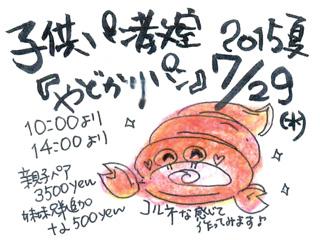 子供パン教室 2015夏
『やどかりパン』7/29
(水)
10:00より
14:00より
親子ペア
3500yen
姉妹兄弟追加
+よ500yen
コルネな感じで
作ってみます♪